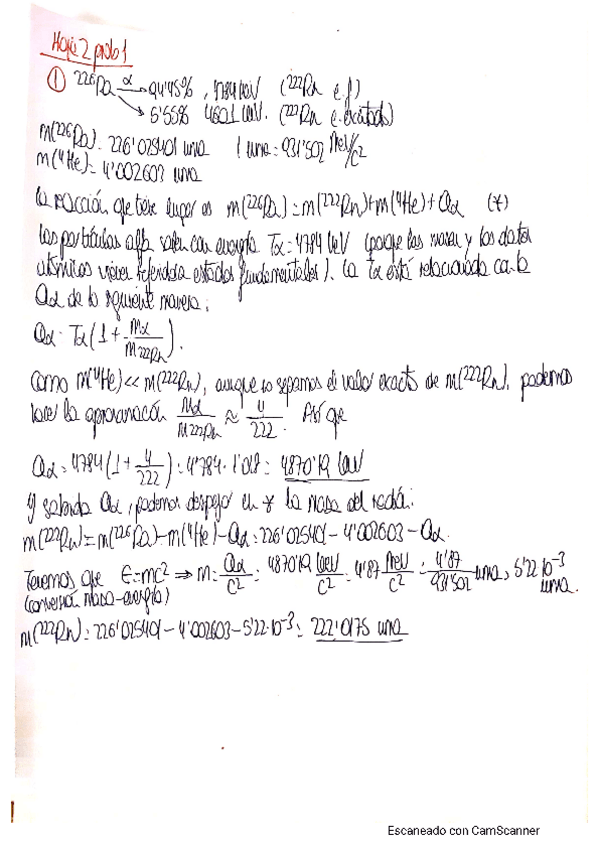 Hoja 2 prob 1
① ²²⁶Ra α→ 94'45% , 4784 keV (²²²Rn e.f)
→ 5'55% 4601 keV. (²²²Rn e. excitado)
m(²²⁶Ra)= 226'025401 uma 1 uma = 931'502 MeV/c²
m(⁴He)= 4'002603 uma
la reacción que tiene lugar es m(²²⁶Ra)=m(²²²Rn)+m(⁴He)+Qα (*)
las partículas alfa salen con energía Tα=4784 keV (porque las masas y los datos
atómicos vienen referidos a estados fundamentales). La Tα está relacionada con la
Qα de la siguiente manera:
Qα = Tα(1 + mα/m²²²Rn).
Como m(⁴He) << m(²²²Rn), aunque no sepamos el valor exacto de m(²²²Rn), podemos
hacer la aproximación mα/m²²²Rn ≈ 4/222. Así que
Qα = 4784(1 + 4/222) = 4'784 · 1'018 = 4870'19 keV
Y sabiendo Qα, podemos despejar en * la masa del radón:
m(²²²Rn)=m(²²⁶Ra)-m(⁴He)-Qα = 226'025401 - 4'002603 - Qα.
Tenemos que E=mc² ⇒ m = Qα/c² = 4870'19 keV/c² = 4'87 MeV/c² = 4'87/931'502 uma = 5'22·10⁻³ uma.
(conversión masa-energía)
m(²²²Rn) = 226'025401 - 4'002603 - 5'22·10⁻³ = 222'0175 uma
Escaneado con CamScanner